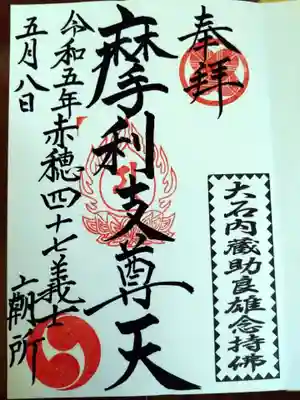 奉拝
大石内蔵助良雄念持佛
摩利支尊天
令和五年赤穂四十七義士廟所
五月八日